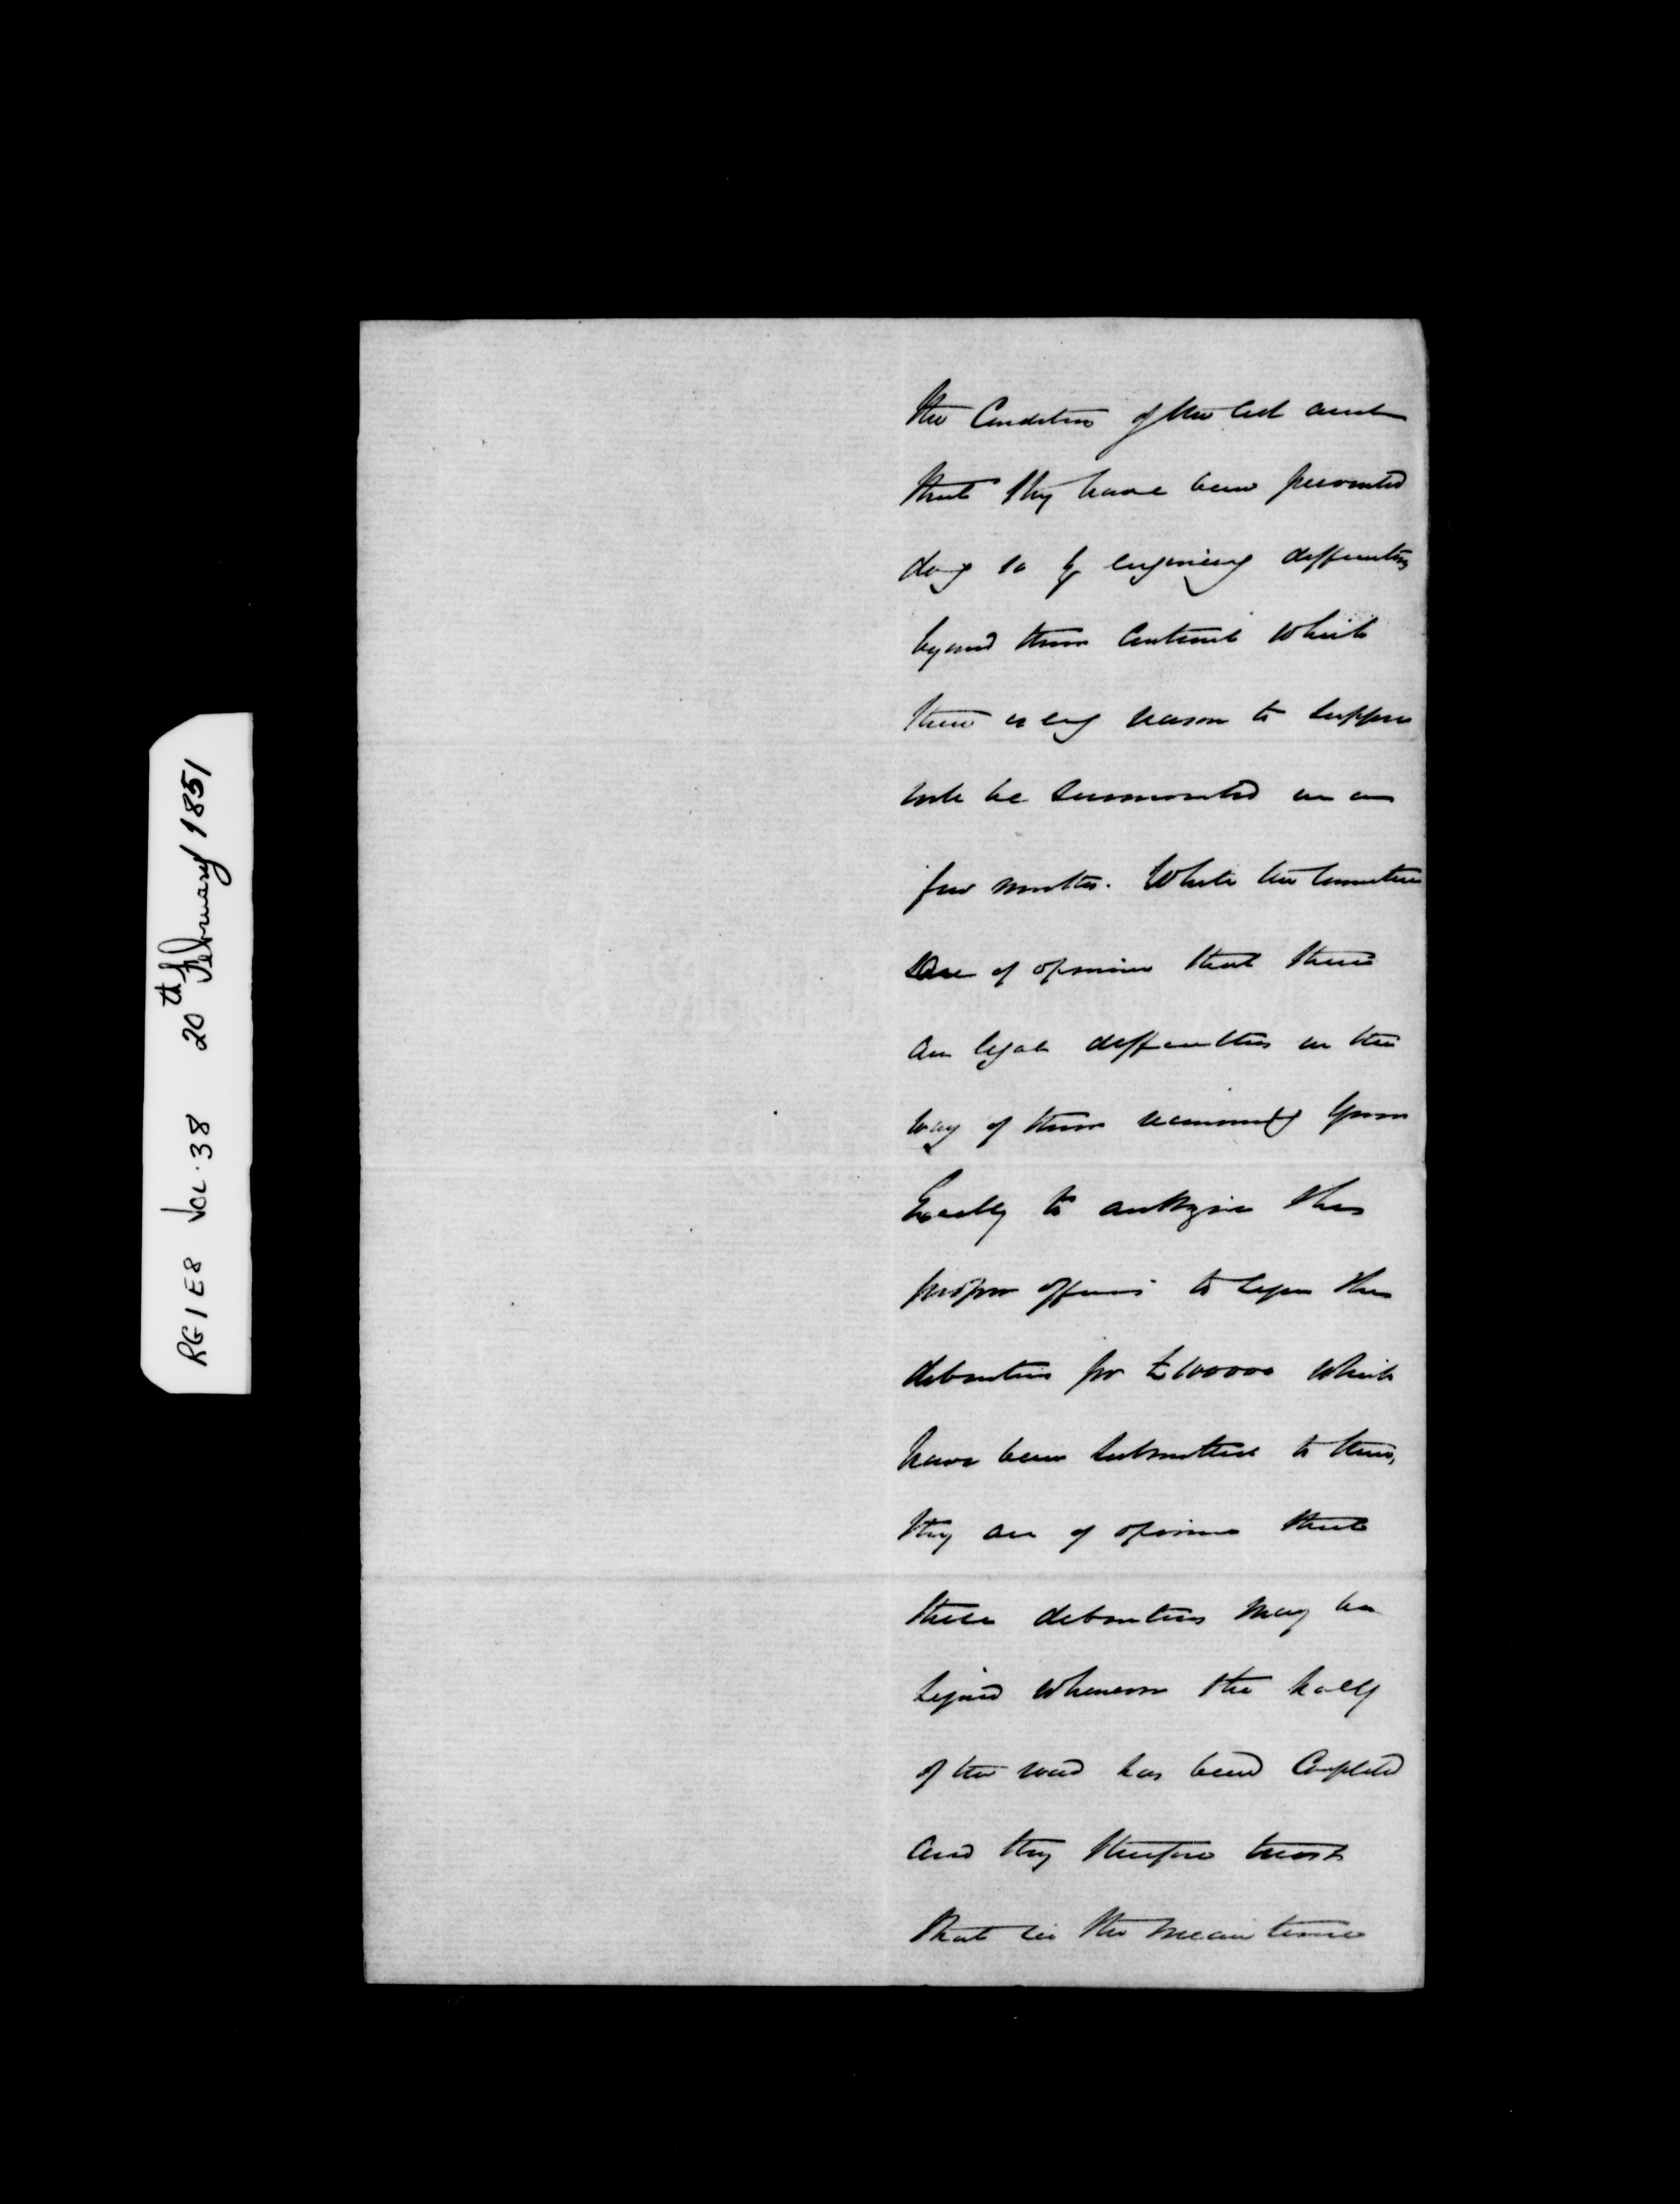 RG1E8 Vol.38 20th February 1851
the Condition of the act and
that they have been prevented
doing so by engineering difficulties
beyond their Control which
there is every reason to suppose
will be surmounted in a
few months. While the Committee
are of opinion that there
are legal difficulties in the
way of their recommending Your
Excelly to authorize the
proper officers to sign the
debentures for £100000 which
have been submitted to them,
they are of opinion that
these debentures may be
signed whenever the half
of the road has been Completed
and they therefore trust
that in the mean time